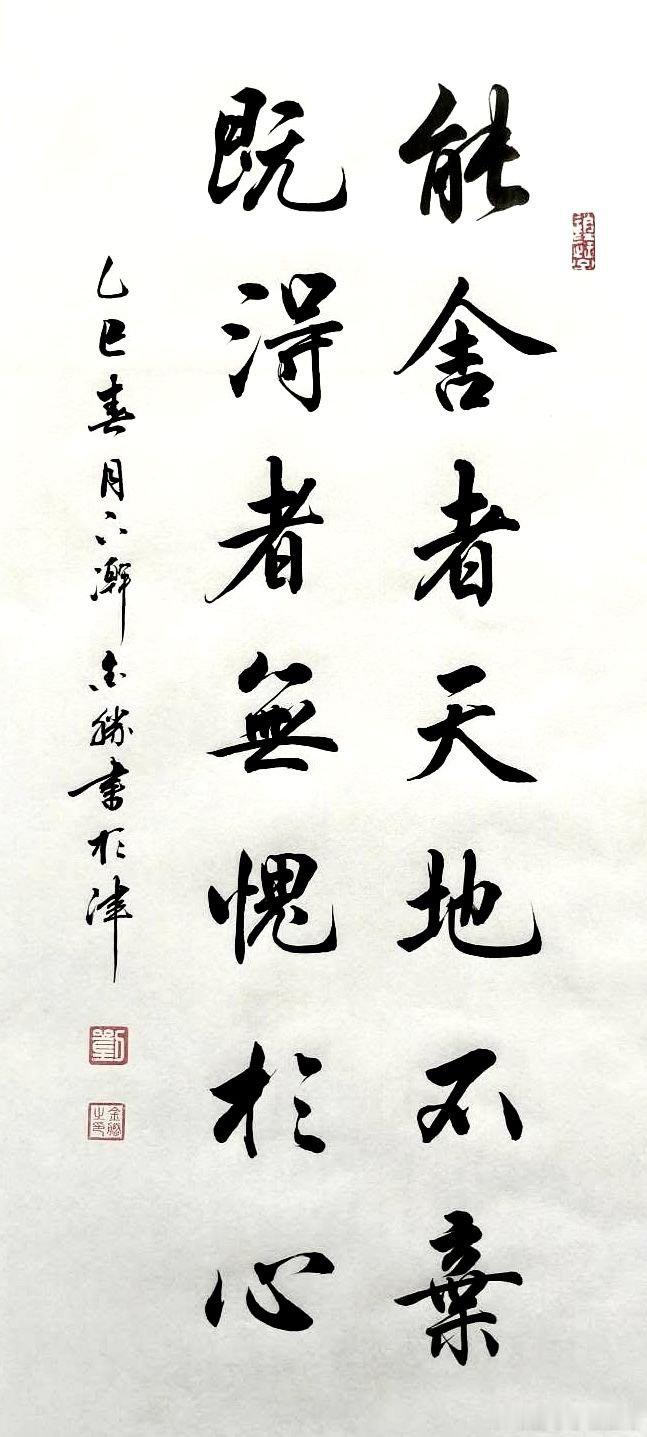 能舍者天地不棄
既得者無愧於心
乙巳春月下澣金勝書於津
劉
金勝之印